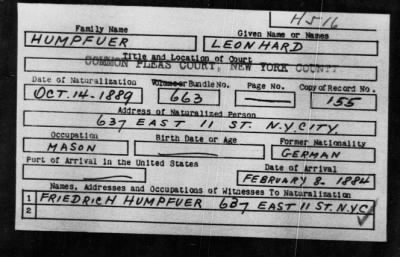 H516
Family Name Given Name or Names
HUMPFUER LEONHARD
Title and Location of Court
COMMON PLEAS COURT, NEW YORK COUNTY
Date of Naturalization Volume or Bundle No. Page No. Copy of Record No.
OCT. 14-1889 663 155
Address of Naturalized Person
637 EAST 11 ST. N.Y. CITY.
Occupation Birth Date or Age Former Nationality
MASON GERMAN
Port of Arrival in the United States Date of Arrival
FEBRUARY 8-1884
Names, Addresses and Occupations of Witnesses To Naturalization
1 FRIEDRICH HUMPFUER 637 EAST 11 ST. N.Y.C.
2